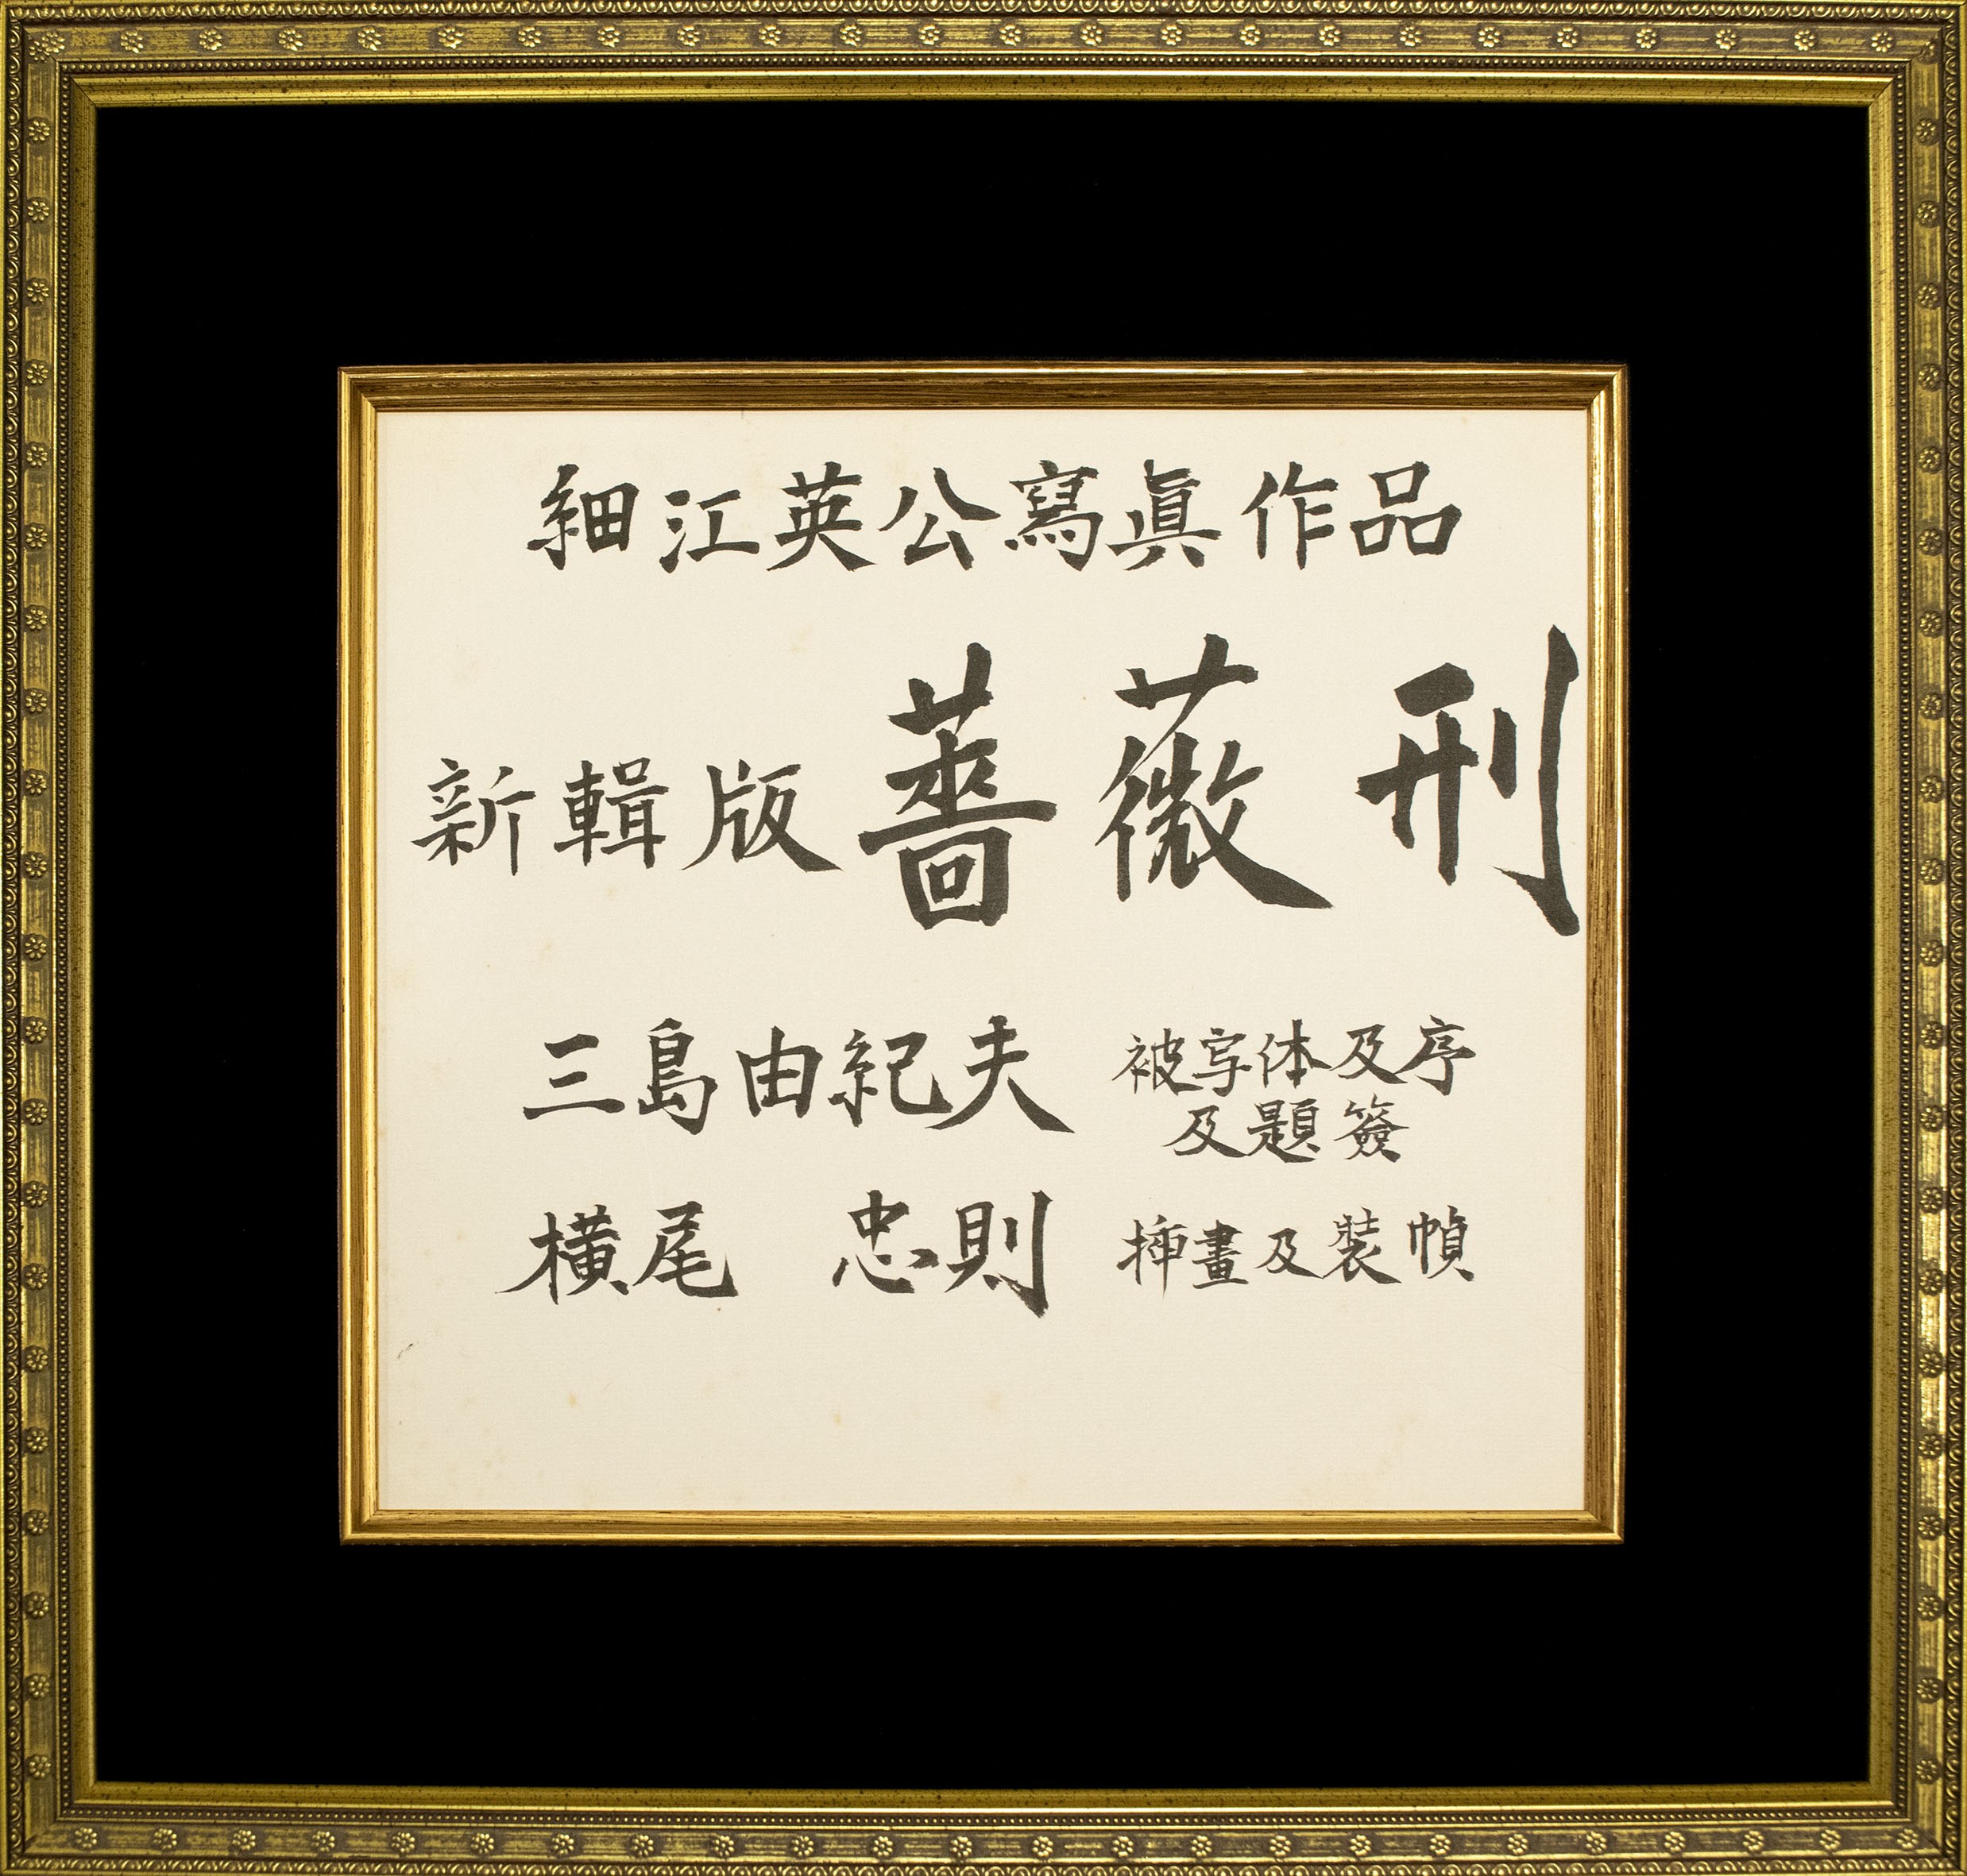 細江英公寫眞作品
新輯版 薔薇刑
三島由紀夫 被写体及序
及題簽
横尾 忠則 挿畫及装幀